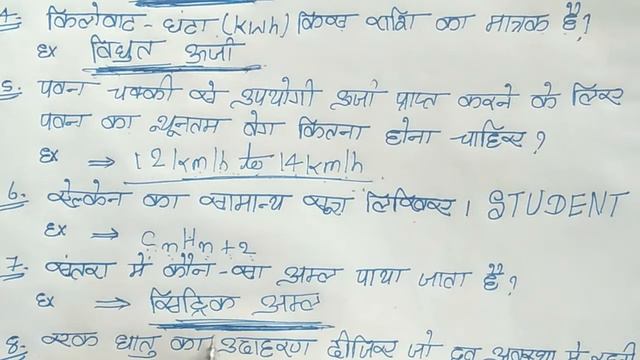 4. किलोवाट - घंटा (kwh) किस राशि का मात्रक है?
Ex विधुत ऊर्जा
5. पवन चक्की से उपयोगी ऊर्जा प्राप्त करने के लिए
पवन का न्यूनतम वेग कितना होना चाहिए?
Ex ⇒ 12 km/h to 14 km/h
6. ऐल्केन का सामान्य सूत्र लिखिए। STUDENT
Ex ⇒ CnHn+2
7. संतरा में कौन-सा अम्ल पाया जाता है?
Ex ⇒ सिट्रिक अम्ल
8. एक धातु का उदाहरण दीजिए जो द्रव अवस्था में